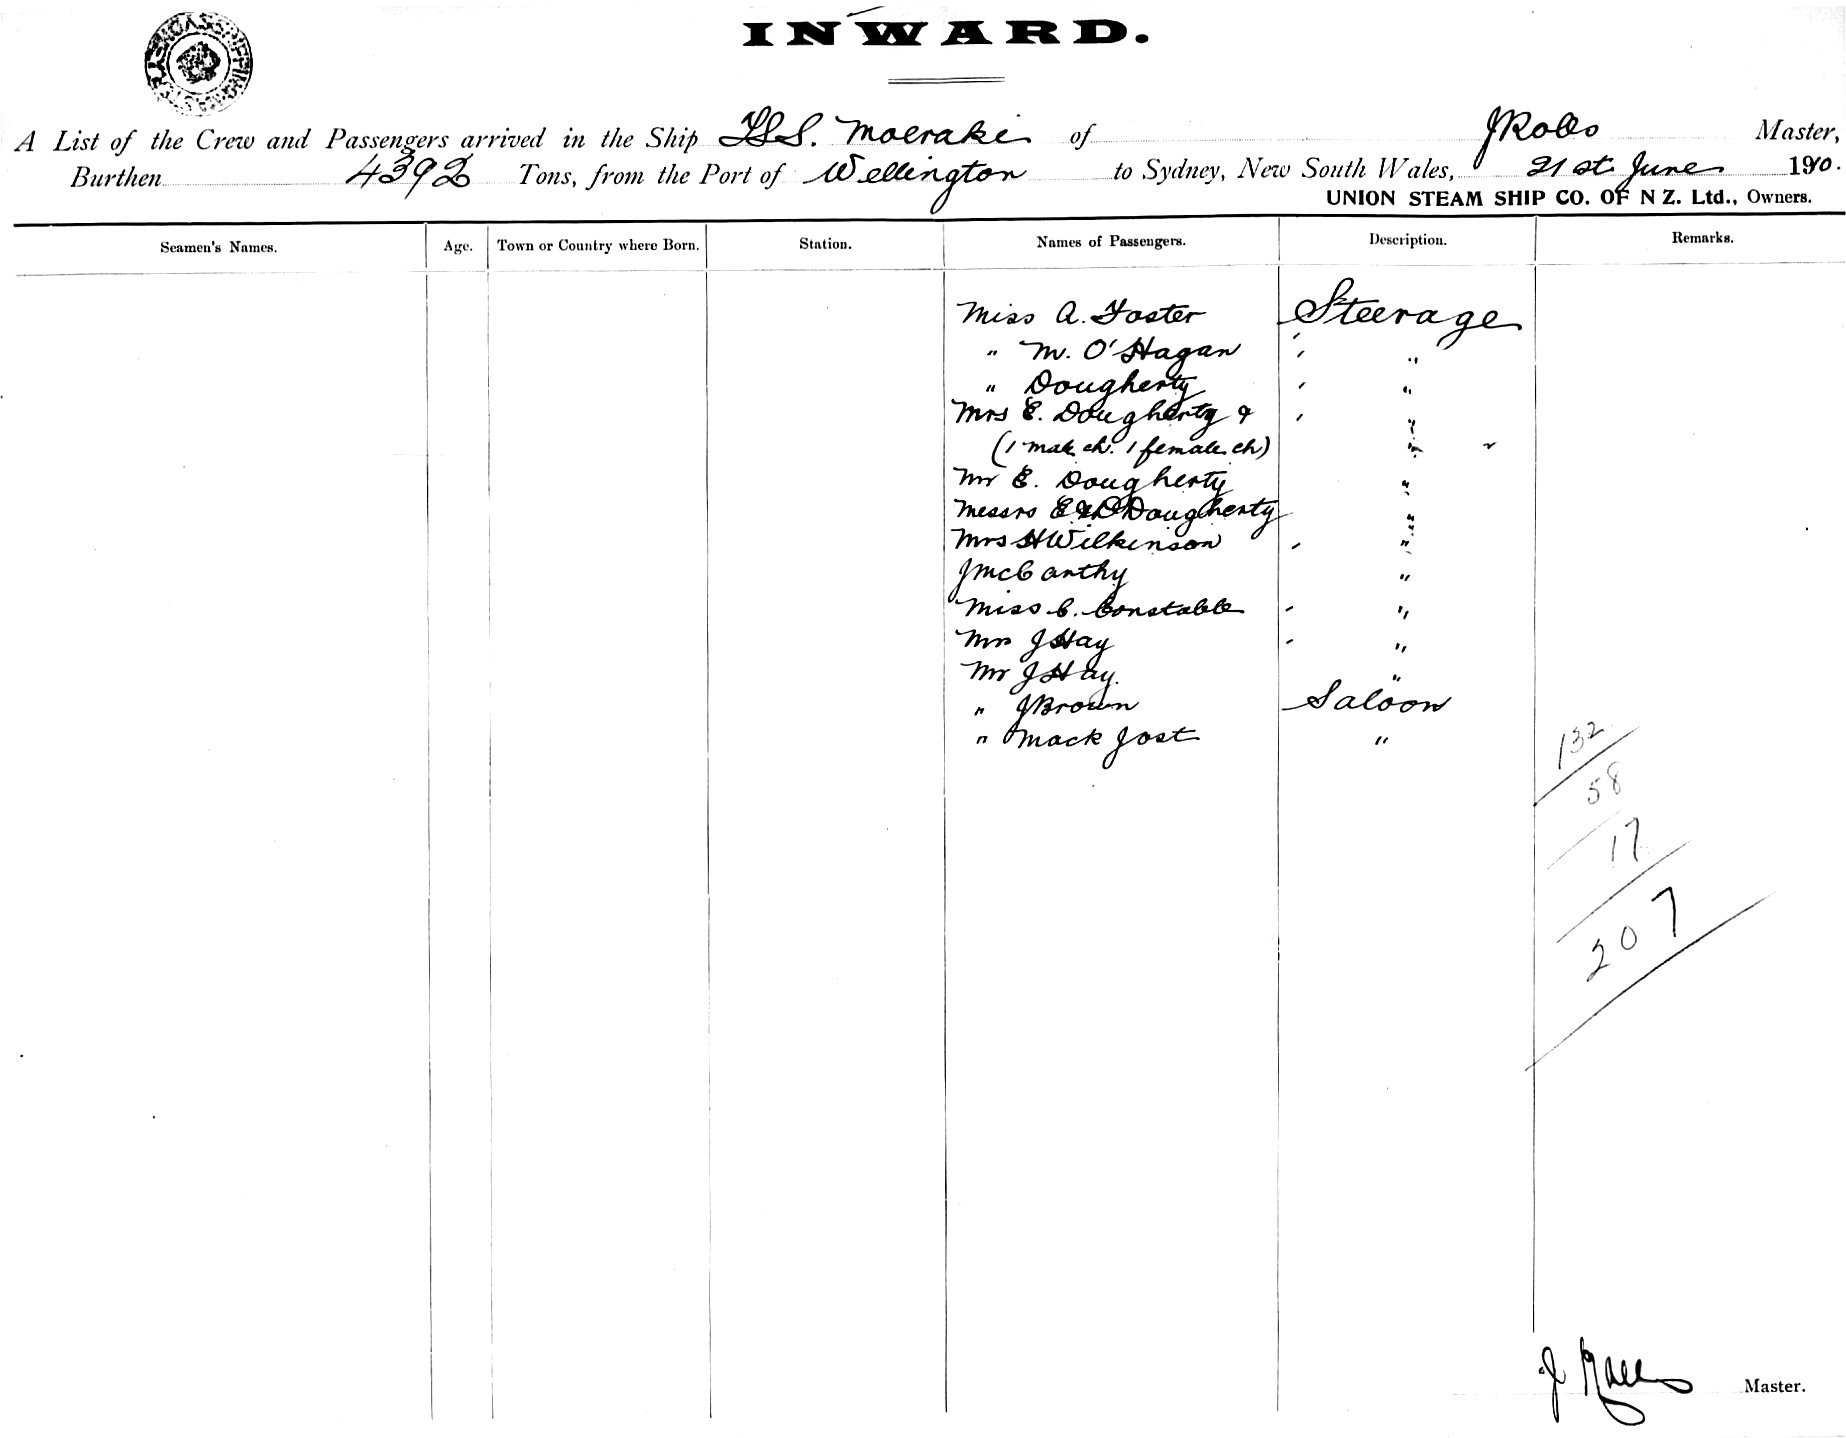 INWARD.
A List of the Crew and Passengers arrived in the Ship TSS. Moeraki of J Rolls Master,
Burthen 4392 Tons, from the Port of Wellington to Sydney, New South Wales, 21st June 1910.
UNION STEAM SHIP CO. OF N Z. Ltd., Owners.
Seamen's Names. Age. Town or Country where Born. Station. Names of Passengers. Description. Remarks.
Miss A. Foster Steerage
" M. O'Hagan " "
" Dougherty " "
Mrs E. Dougherty & " "
(1 male ch. 1 female ch) "
Mr E. Dougherty "
Messrs E & D Dougherty "
Mrs H Wilkinson "
J McCarthy "
Miss C. Constable "
Mrs J Hay "
Mr J Hay. "
" J Brown Saloon
" Mack Jost "
132
58
17
207
J Rolls Master.